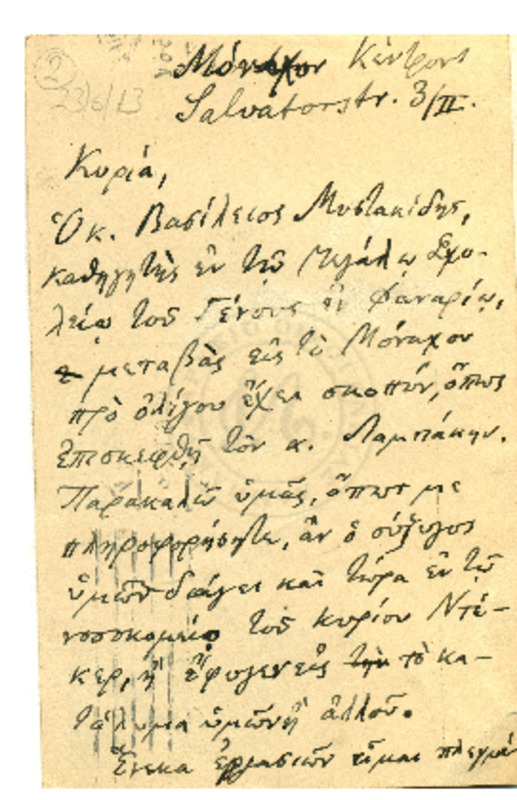 2
23/6/13
Μόναχον Κέντρον
Salvatorstr. 3/II.
Κυρία,
Ὁ κ. Βασίλειος Μυστακίδης,
καθηγητὴς ἐν τῇ Μεγάλῃ Σχο-
λείῳ τοῦ Γένους ἐν Φαναρίῳ,
μεταβὰς εἰς τὸ Μόναχον
πρὸ ὀλίγου ἔχει σκοπόν, ὅπως
ἐπισκεφθῇ τὸν κ. Λαμπάκην.
Παρακαλῶ ὑμᾶς, ὅπως με
πληροφορήσητε, ἂν ὁ σύζυγος
ὑμῶν διάγει καὶ τώρα ἐν τῷ
νοσοκομείῳ τοῦ κυρίου Ντέ-
κερ, ἢ ἔφυγεν εἰς τὸ κα-
τάλυμα ὑμῶν ἢ ἀλλοῦ.
Ἕνεκα ἐργασιῶν εἶμαι